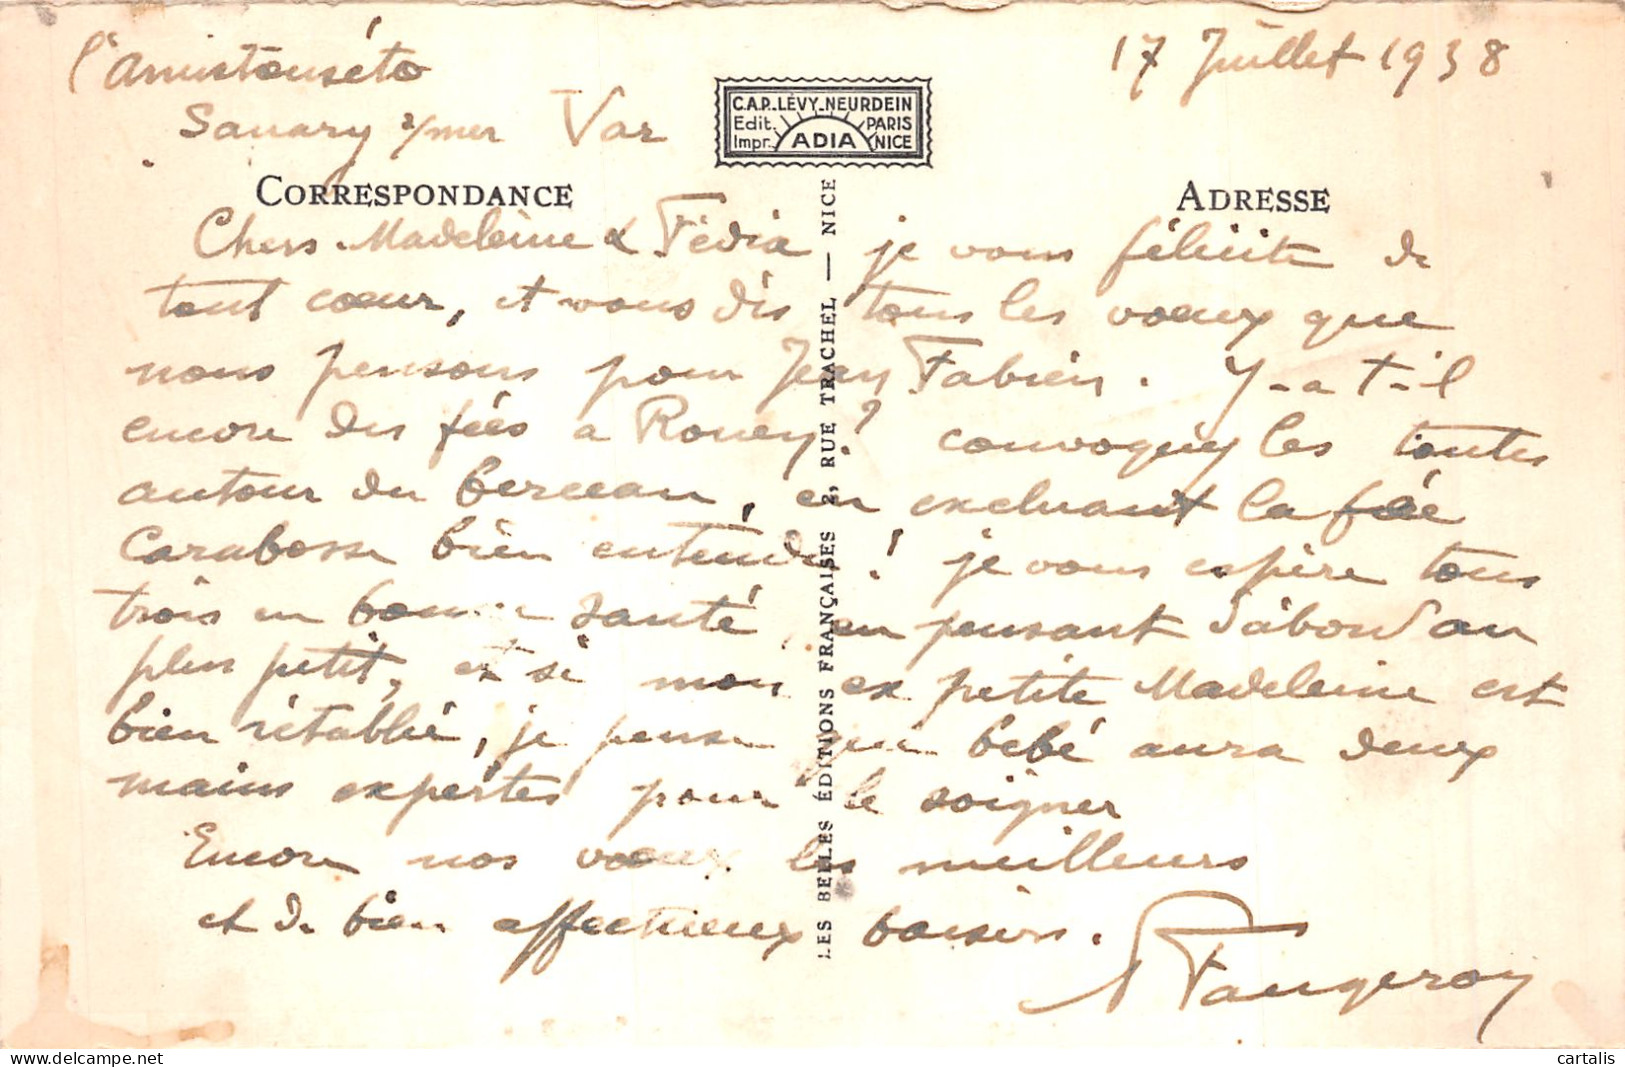 l'Amistouséto
17 Juillet 1938
Sanary s/mer Var
C.A.P. LÉVY_NEURDEIN
Edit. PARIS
Impr. ADIA NICE
CORRESPONDANCE
ADRESSE
Chers Madeleine & Fédia je vous félicite de
tout cœur, et vous dis tous les voeux que
nous pensons pour Jean Fabien. Y-a t-il
encore des fées a Rouen? convoquez les toutes
autour du berceau, en excluant la fée
Carabosse bien entendu! je vous espère tous
trois en bonne santé, en pensant d'abord au
plus petit, et si mon ex petite Madeleine est
bien rétablie, je pense que bébé aura deux
mains expertes pour le soigner
Encore nos voeux les meilleurs
et de bien affectueux baisers.
Faugeroy
LES BELLES ÉDITIONS FRANÇAISES 2, RUE TRACHEL — NICE
cartalis